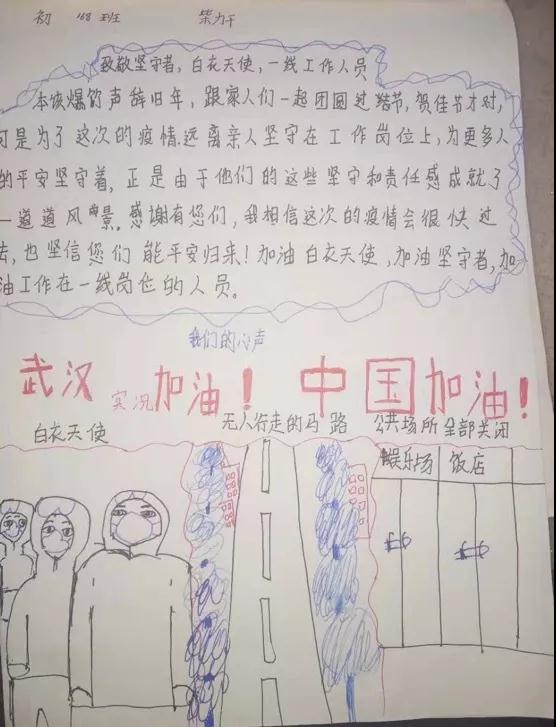 初 168班
致敬坚守者，白衣天使，一线工作人员
本该爆饮声辞旧年，跟家人们一起团圆过踏节，贺佳节才对，
可是为了这次的疫情远离亲人坚守在工作岗位上，为更多人
的平安坚守着，正是由于他们的这些坚守和责任感成就了
一道道风景。感谢有您们，我相信这次的疫情会很快过
去，也坚信您们能平安归来！加油白衣天使，加油坚守者，加
油工作在一线岗位的人员。
我们的心声
武汉 加油！ 中国加油！
实况
白衣天使 无人行走的马路 公共场所全部关闭
娱乐场 饭店